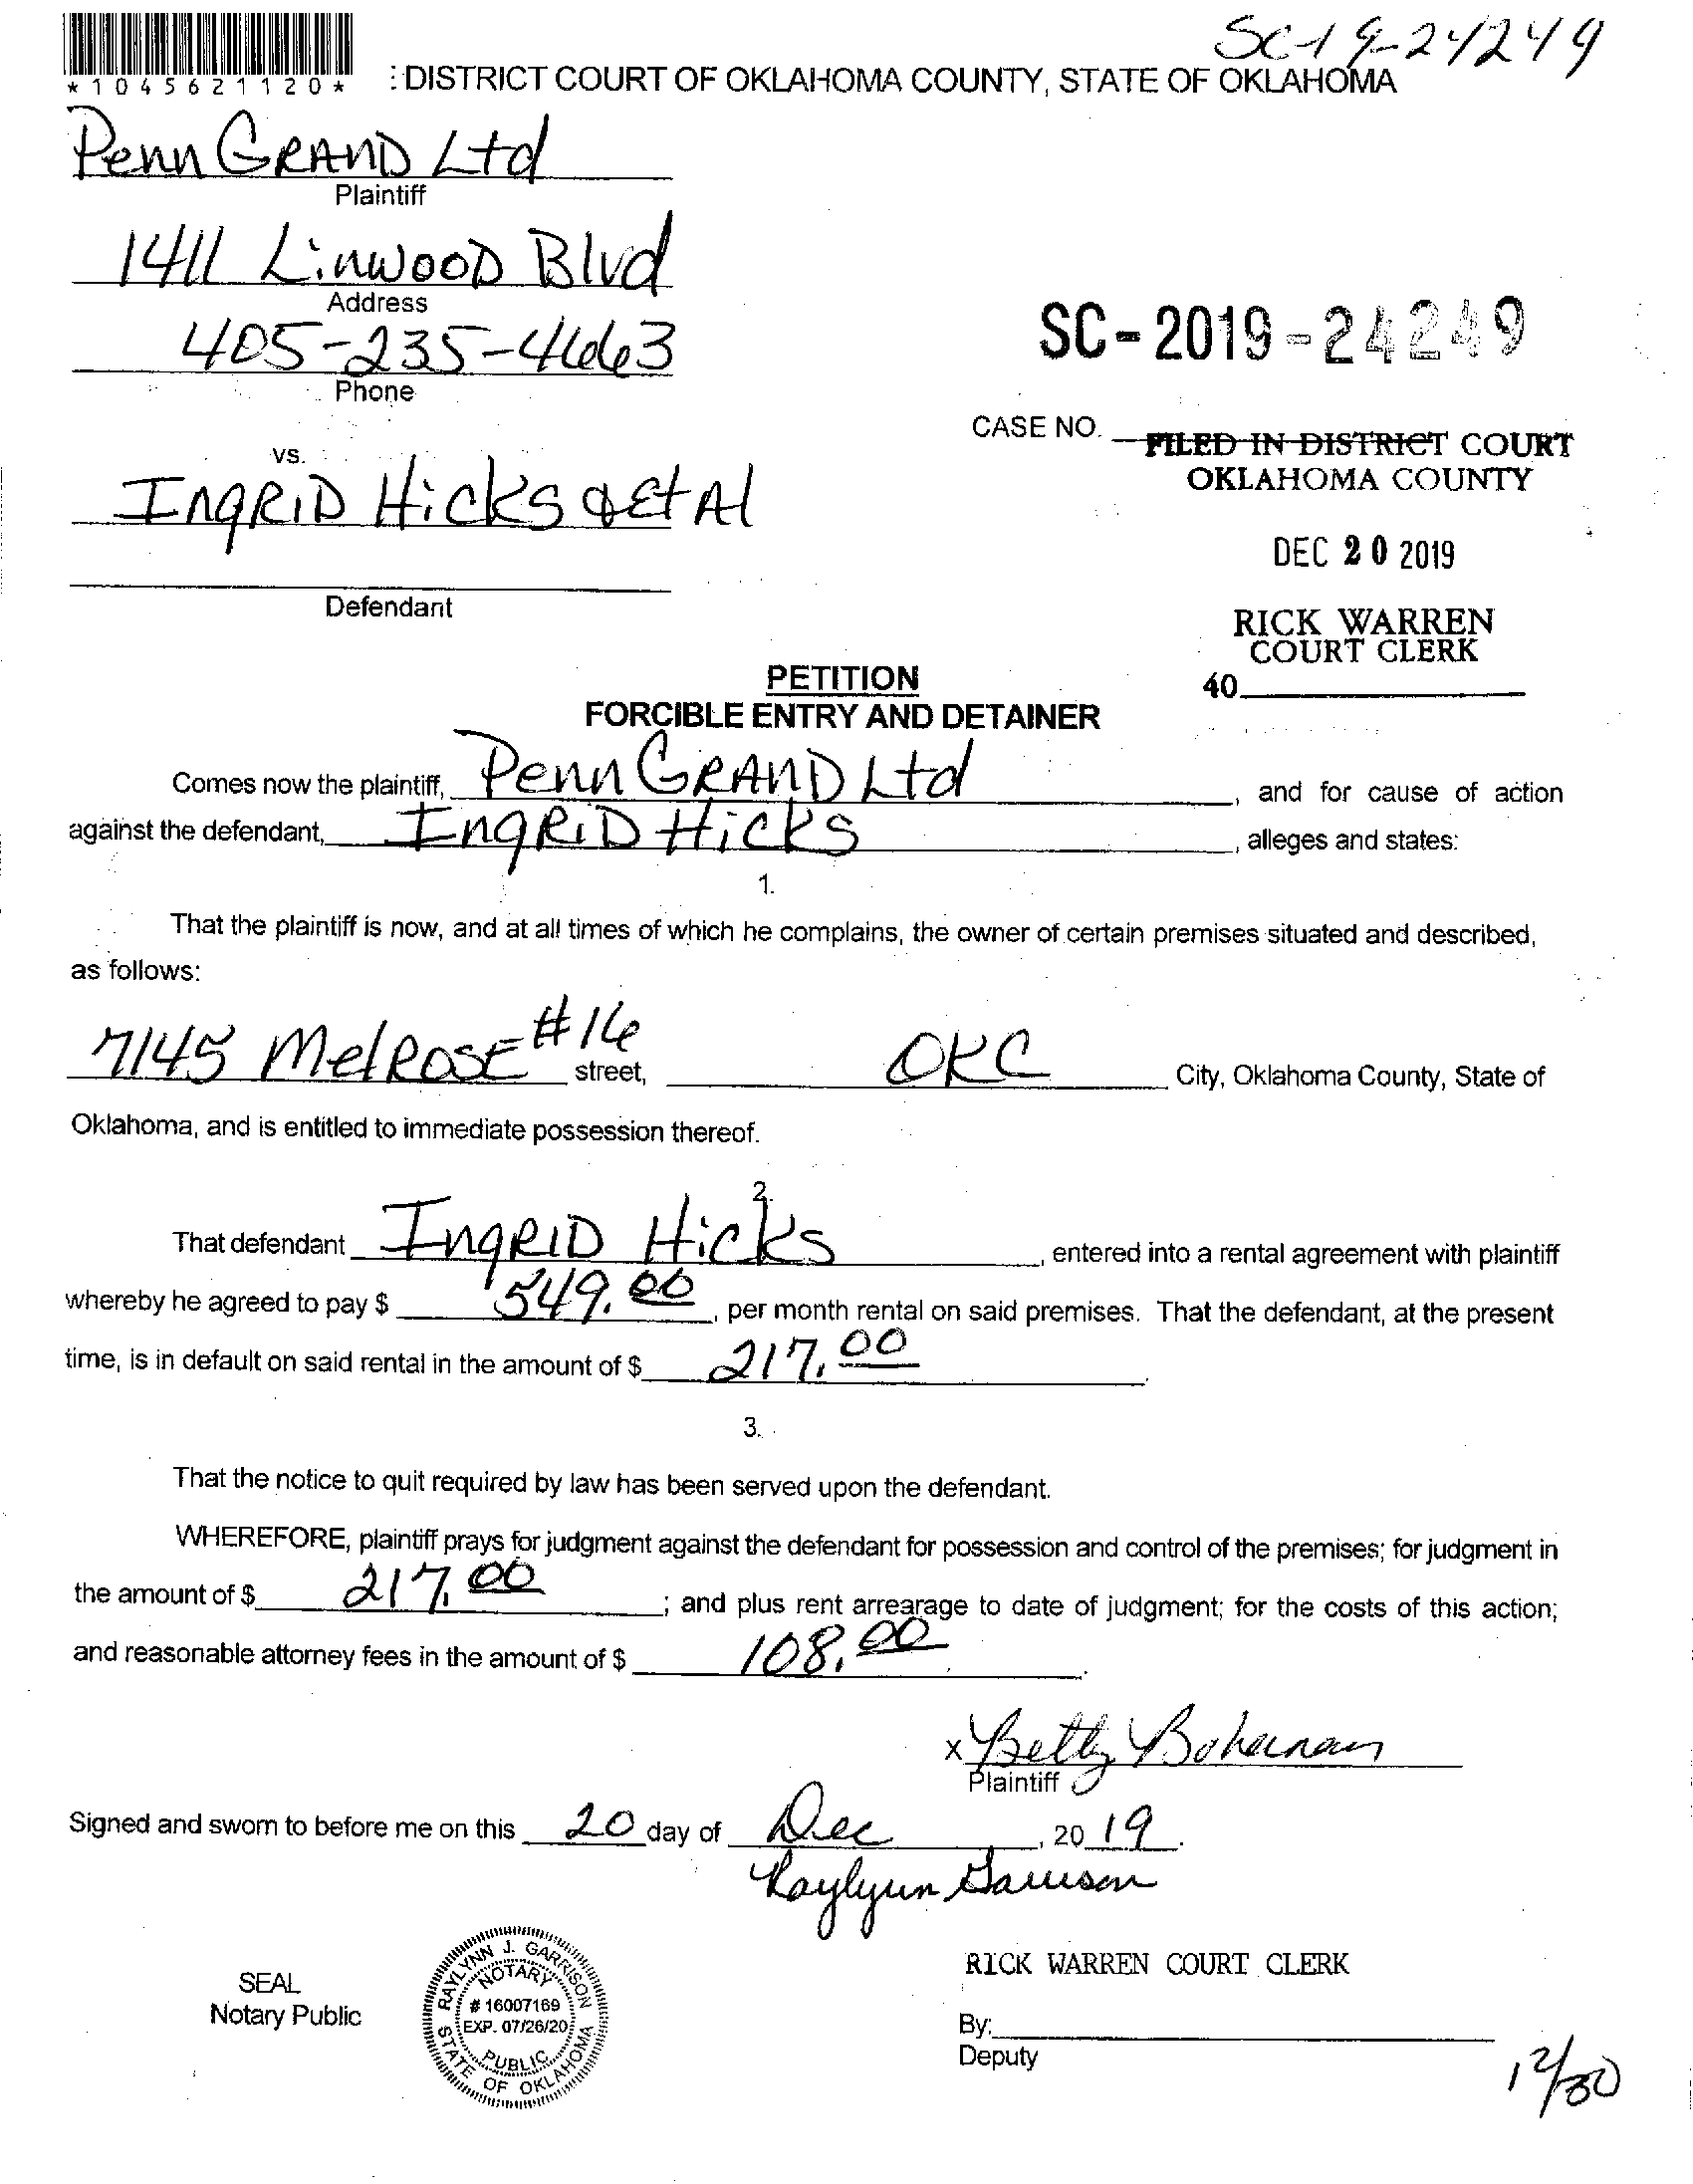 SC-19-24249
*1045621120*
: DISTRICT COURT OF OKLAHOMA COUNTY, STATE OF OKLAHOMA
Penn GRAND Ltd
Plaintiff
1411 LinwooD Blvd
Address
405-235-4663
Phone
SC-2019-24249
CASE NO.
FILED IN DISTRICT COURT
OKLAHOMA COUNTY
vs.
INgRiD Hicks & Et Al
DEC 20 2019
Defendant
RICK WARREN
COURT CLERK
40
PETITION
FORCIBLE ENTRY AND DETAINER
Comes now the plaintiff, Penn GRAND Ltd, and for cause of action
against the defendant, INgRiD Hicks, alleges and states:
1.
That the plaintiff is now, and at all times of which he complains, the owner of certain premises situated and described,
as follows:
7145 MelRosE #16 street, OKC City, Oklahoma County, State of
Oklahoma, and is entitled to immediate possession thereof.
2.
That defendant INgRID Hicks, entered into a rental agreement with plaintiff
whereby he agreed to pay $ 549.00, per month rental on said premises. That the defendant, at the present
time, is in default on said rental in the amount of $ 217.00.
3.
That the notice to quit required by law has been served upon the defendant.
WHEREFORE, plaintiff prays for judgment against the defendant for possession and control of the premises; for judgment in
the amount of $ 217.00; and plus rent arrearage to date of judgment; for the costs of this action;
and reasonable attorney fees in the amount of $ 108.00.
x Betty Bohanan
Plaintiff
Signed and sworn to before me on this 20 day of Dec, 20 19.
Raylynn Garrison
SEAL
Notary Public
RAYLYNN J. GARRISON
NOTARY
# 16007169
EXP. 07/26/20
PUBLIC
STATE OF OKLAHOMA
RICK WARREN COURT CLERK
By:
Deputy
12/30